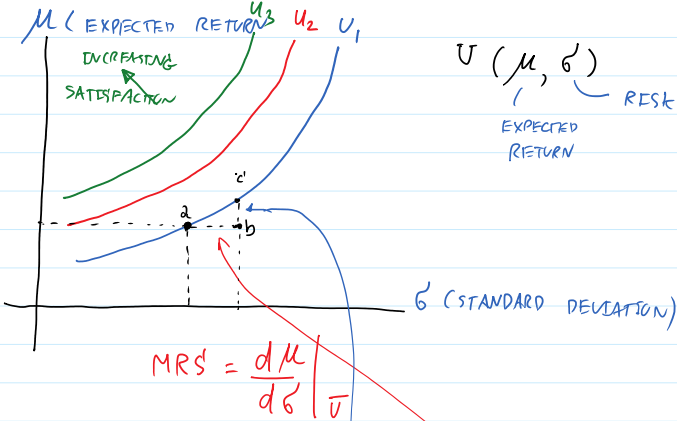 μ ( EXPECTED RETURN)
U3
U2
U1
INCREASING
SATISFACTION
U ( μ, σ )
RISK
EXPECTED
RETURN
c
a
b
σ (STANDARD DEVIATION)
MRS = dμ/dσ | Ū